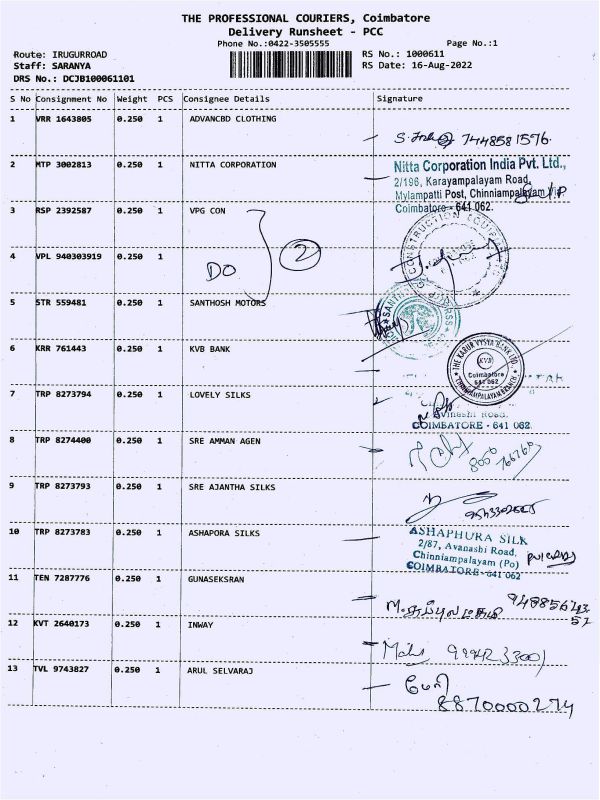 THE PROFESSIONAL COURIERS, Coimbatore
Delivery Runsheet - PCC
Phone No.:0422-3505555 Page No.:1
Route: IRUGURROAD RS No.: 1000611
Staff: SARANYA RS Date: 16-Aug-2022
DRS No.: DCJB100061101
S No Consignment No Weight PCS Consignee Details Signature
1 VRR 1643805 0.250 1 ADVANCBD CLOTHING
7448581576.
2 MTP 3002813 0.250 1 NITTA CORPORATION
Nitta Corporation India Pvt. Ltd.,
2/196, Karayampalayam Road,
Mylampatti Post, Chinniampalayam
Coimbatore - 641 062.
3 RSP 2392587 0.250 1 VPG CON
CONSTRUCTION EQUIP
4 VPL 940303919 0.250 1
DO 2
5 STR 559481 0.250 1 SANTHOSH MOTORS
6 KRR 761443 0.250 1 KVB BANK
THE KARUR VYSYA BANK LTD
KVB
Coimbatore
641 062
CHINNIAMPALAYAM BRANCH
7 TRP 8273794 0.250 1 LOVELY SILKS
Avinashi Road,
COIMBATORE - 641 062.
8 TRP 8274400 0.250 1 SRE AMMAN AGEN
9 TRP 8273793 0.250 1 SRE AJANTHA SILKS
10 TRP 8273783 0.250 1 ASHAPORA SILKS
ASHAPHURA SILK
2/87, Avanashi Road,
Chinniampalayam (Po)
COIMBATORE - 641 062
11 TEN 7287776 0.250 1 GUNASEKSRAN
12 KVT 2640173 0.250 1 INWAY
13 TVL 9743827 0.250 1 ARUL SELVARAJ
8870000274